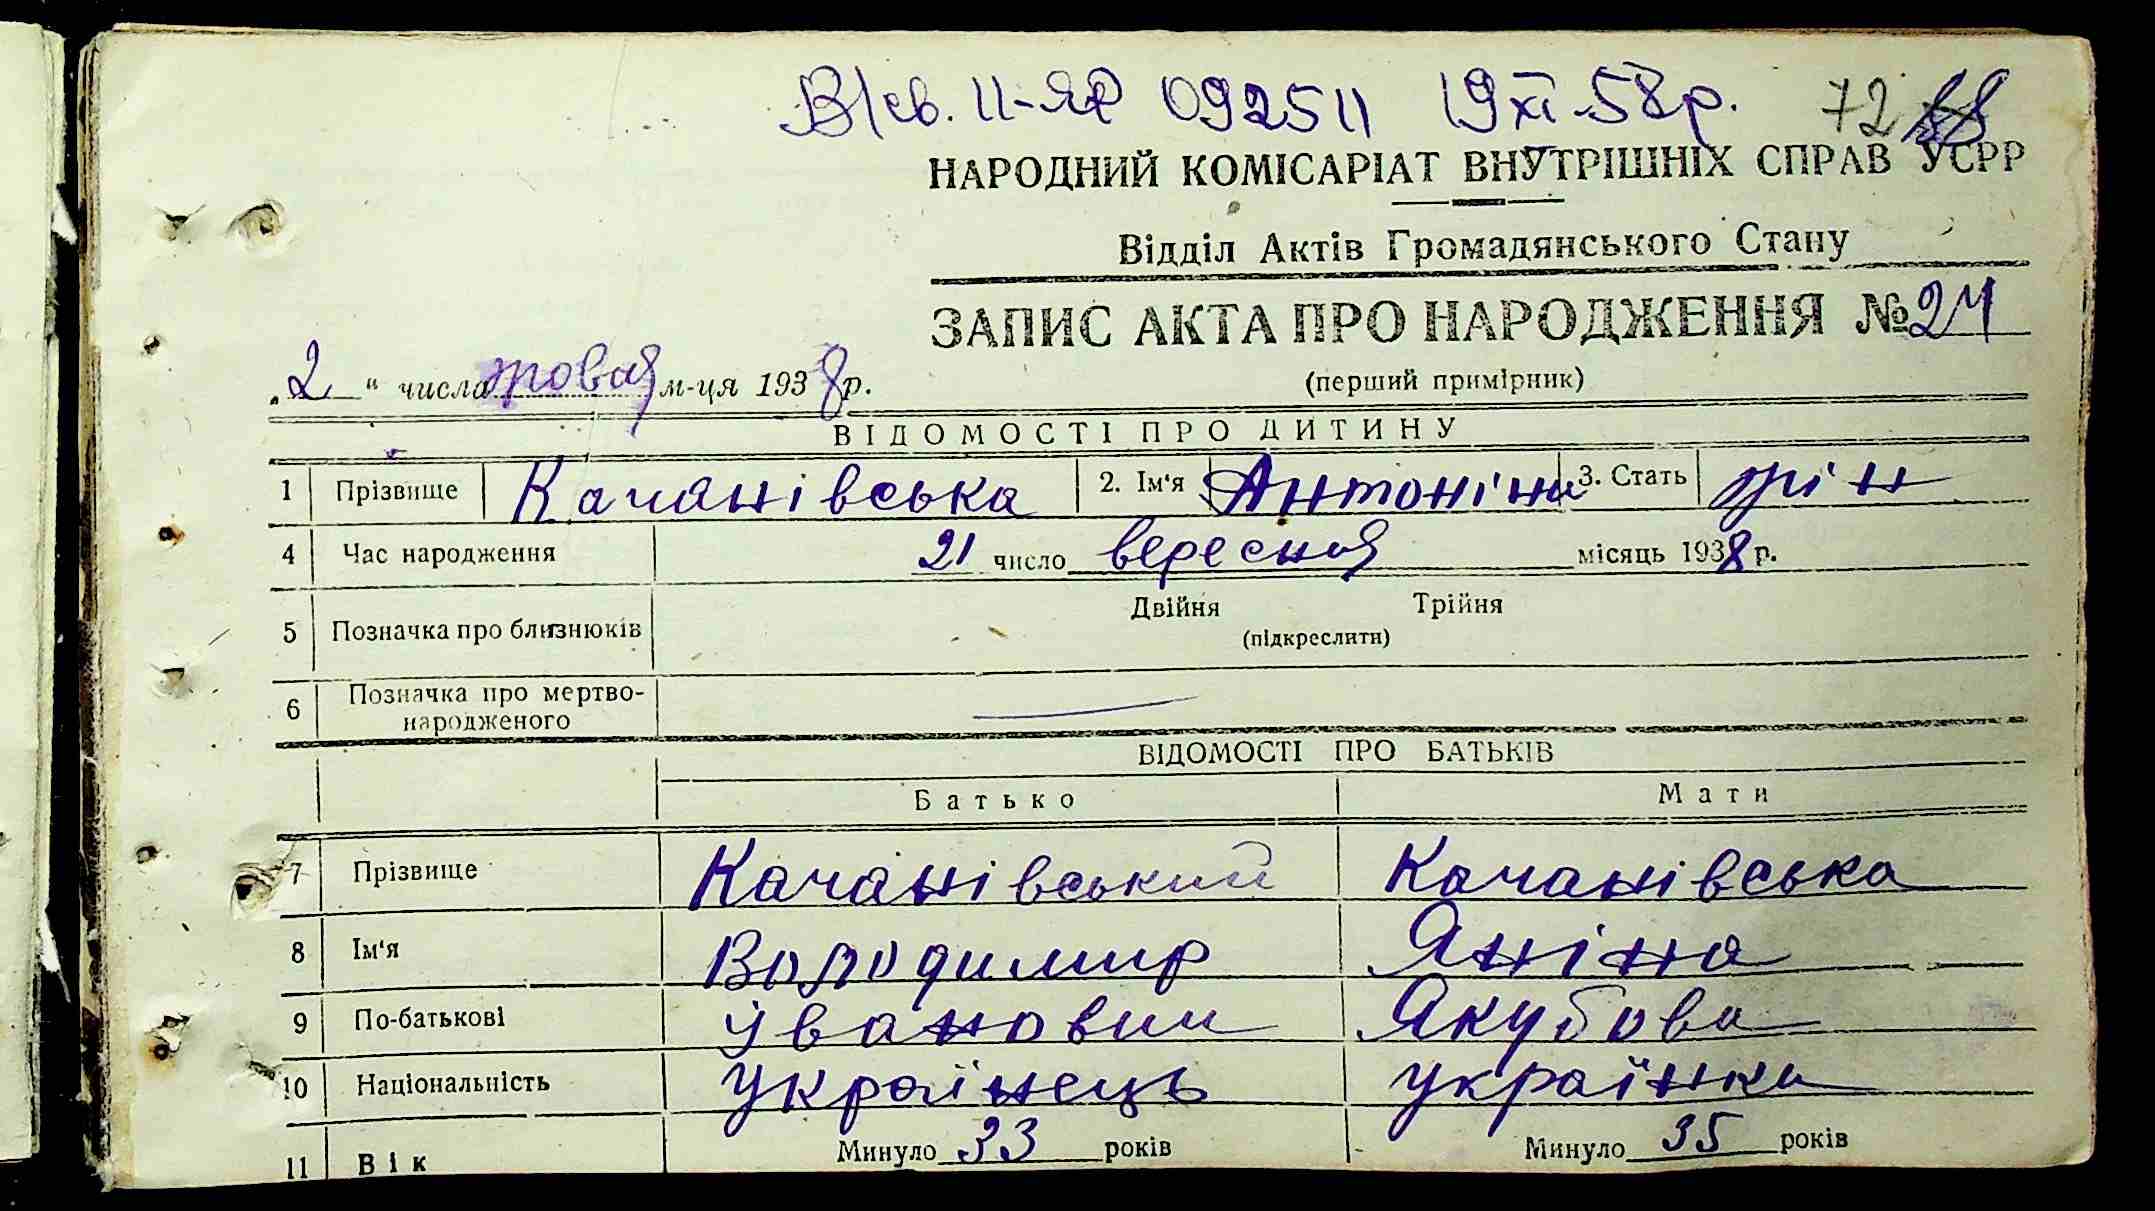 В/св. II-ЯР 092511 19 XI 58 р. 72
НАРОДНИЙ КОМІСАРІАТ ВНУТРІШНІХ СПРАВ УСРР
Відділ Актів Громадянського Стану
ЗАПИС АКТА ПРО НАРОДЖЕННЯ № 24
„2“ числа жовтя м-ця 1938 р.
(перший примірник)
ВІДОМОСТІ ПРО ДИТИНУ
1 Прізвище Качанівська 2. Ім'я Антоніна 3. Стать жін
4 Час народження 21 число вересня місяць 1938 р.
5 Позначка про близнюків Двійня Трійня
(підкреслити)
6 Позначка про мертво-
народженого
ВІДОМОСТІ ПРО БАТЬКІВ
Батько Мати
7 Прізвище Качанівський Качанівська
8 Ім'я Володимир Яніна
9 По-батькові Іванович Якубова
10 Національність Українець українка
11 Вік Минуло 33 років Минуло 35 років